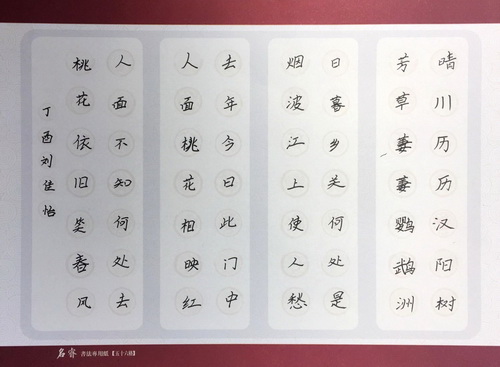 晴川历历汉阳树
芳草萋萋鹦鹉洲
日暮乡关何处是
烟波江上使人愁
去年今日此门中
人面桃花相映红
人面不知何处去
桃花依旧笑春风
丁酉刘佳怡
名睿 書法專用紙【五十六格】